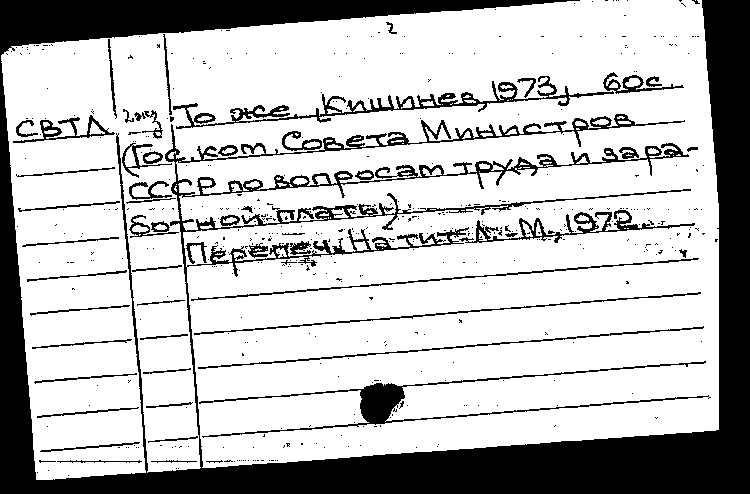 2
СВТЛ 2 экз То же. [Кишинев, 1973]. 60с.
(Гос. ком. Совета Министров
СССР по вопросам труда и зара-
ботной платы).
Перепеч. На тит. л.: М., 1972.